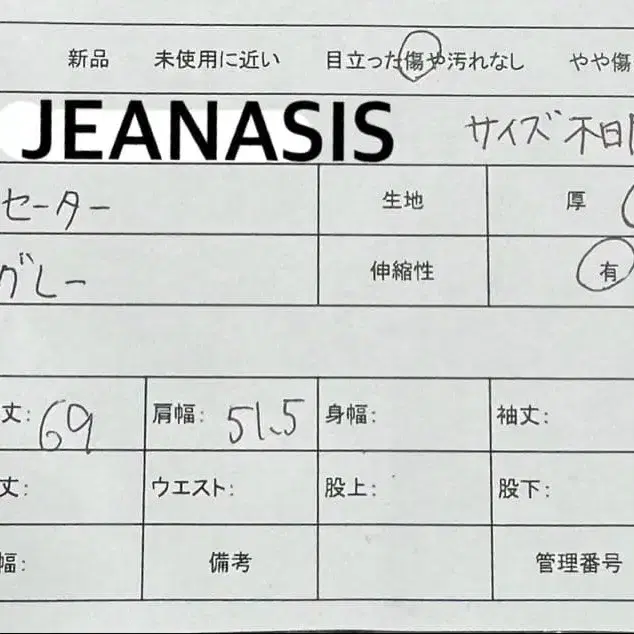 新品 未使用に近い 目立った傷や汚れなし やや傷
JEANASIS サイズ不
セーター 生地 厚
グレー 伸縮性 有
丈: 69 肩幅: 51.5 身幅: 袖丈:
丈: ウエスト: 股上: 股下:
幅: 備考 管理番号